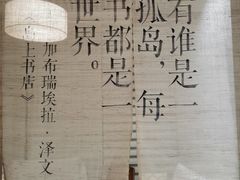 有谁是一
孤岛，每
书都是一
世界。
加布瑞埃拉·泽文
岛上书店》